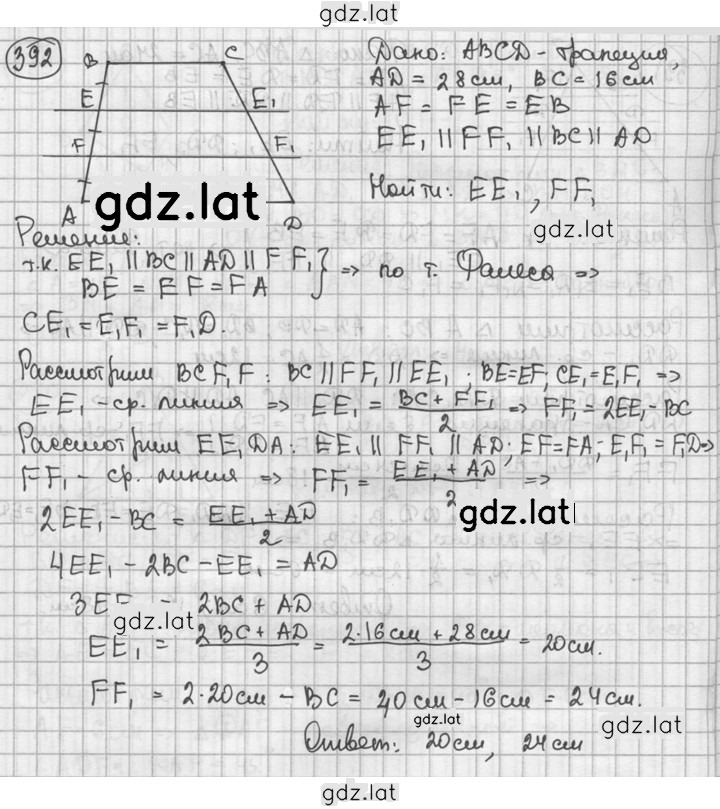 gdz.lat
392
B C
E E₁
F F₁
A D
Дано: ABCD - трапеция,
AD = 28 см, BC = 16 см
AF = FE = EB
EE₁ || FF₁ || BC || AD
Найти: EE₁, FF₁
gdz.lat
gdz.lat
Решение:
т.к. EE₁ || BC || AD || FF₁
BE = EF = FA } => по т. Фалеса =>
CE₁ = E₁F₁ = F₁D.
Рассмотрим BCF₁F: BC || FF₁ || EE₁; BE=EF, CE₁=E₁F₁ =>
EE₁ - ср. линия => EE₁ = (BC + FF₁)/2 => FF₁ = 2EE₁ - BC
Рассмотрим EE₁DA: EE₁ || FF₁ || AD; EF=FA; E₁F₁ = F₁D =>
FF₁ - ср. линия => FF₁ = (EE₁ + AD)/2 =>
gdz.lat
2EE₁ - BC = (EE₁ + AD)/2
4EE₁ - 2BC - EE₁ = AD
3E = 2BC + AD
gdz.lat
EE₁ = (2BC + AD)/3 = (2·16см + 28см)/3 = 20см.
FF₁ = 2·20см - BC = 40см - 16см = 24см.
gdz.lat
Ответ: 20см, 24см
gdz.lat